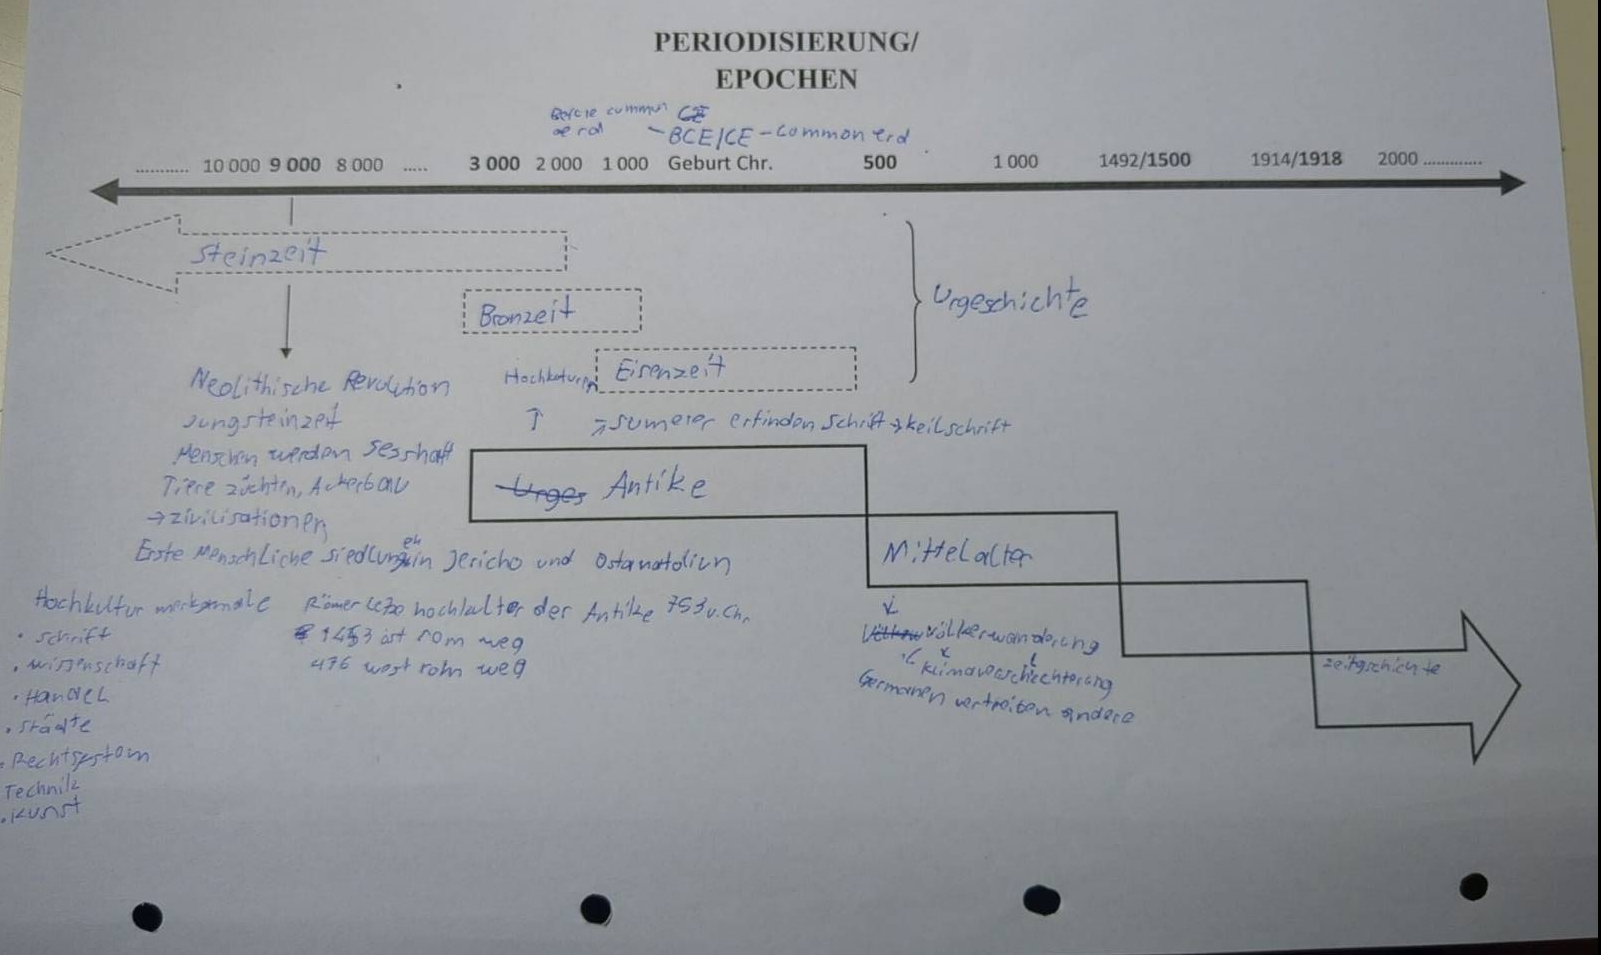 PERIODISIERUNG/
EPOCHEN
Before commun CE
aera
BCE/CE - Common erd
........... 10 000 9 000 8 000 ..... 3 000 2 000 1 000 Geburt Chr. 500 1 000 1492/1500 1914/1918 2000 ............
Steinzeit
Bronzeit
Urgeschichte
Eisenzeit
Neolithische Revolution
Jungsteinzeit
Menschen werden Sesshaft
Tiere züchten, Ackerbau
→ zivilisationen
Erste Menschliche Siedlungen in Jericho und Ostanatolien
↑
→ Sumerer erfinden Schrift → keilschrift
Urges Antike
Mittelalter
Zeitgschichte
Hochkultur merksmale
• Schrift
• wissenschaft
• Handel
• Städte
• Rechtssystem
Technik
• Kunst
Römer der Antike 753 v. Chr.
1453 ist rom weg
476 west rohm weg
völkerwanderung
klimaverschlechterung
Germanen vertreiben andere